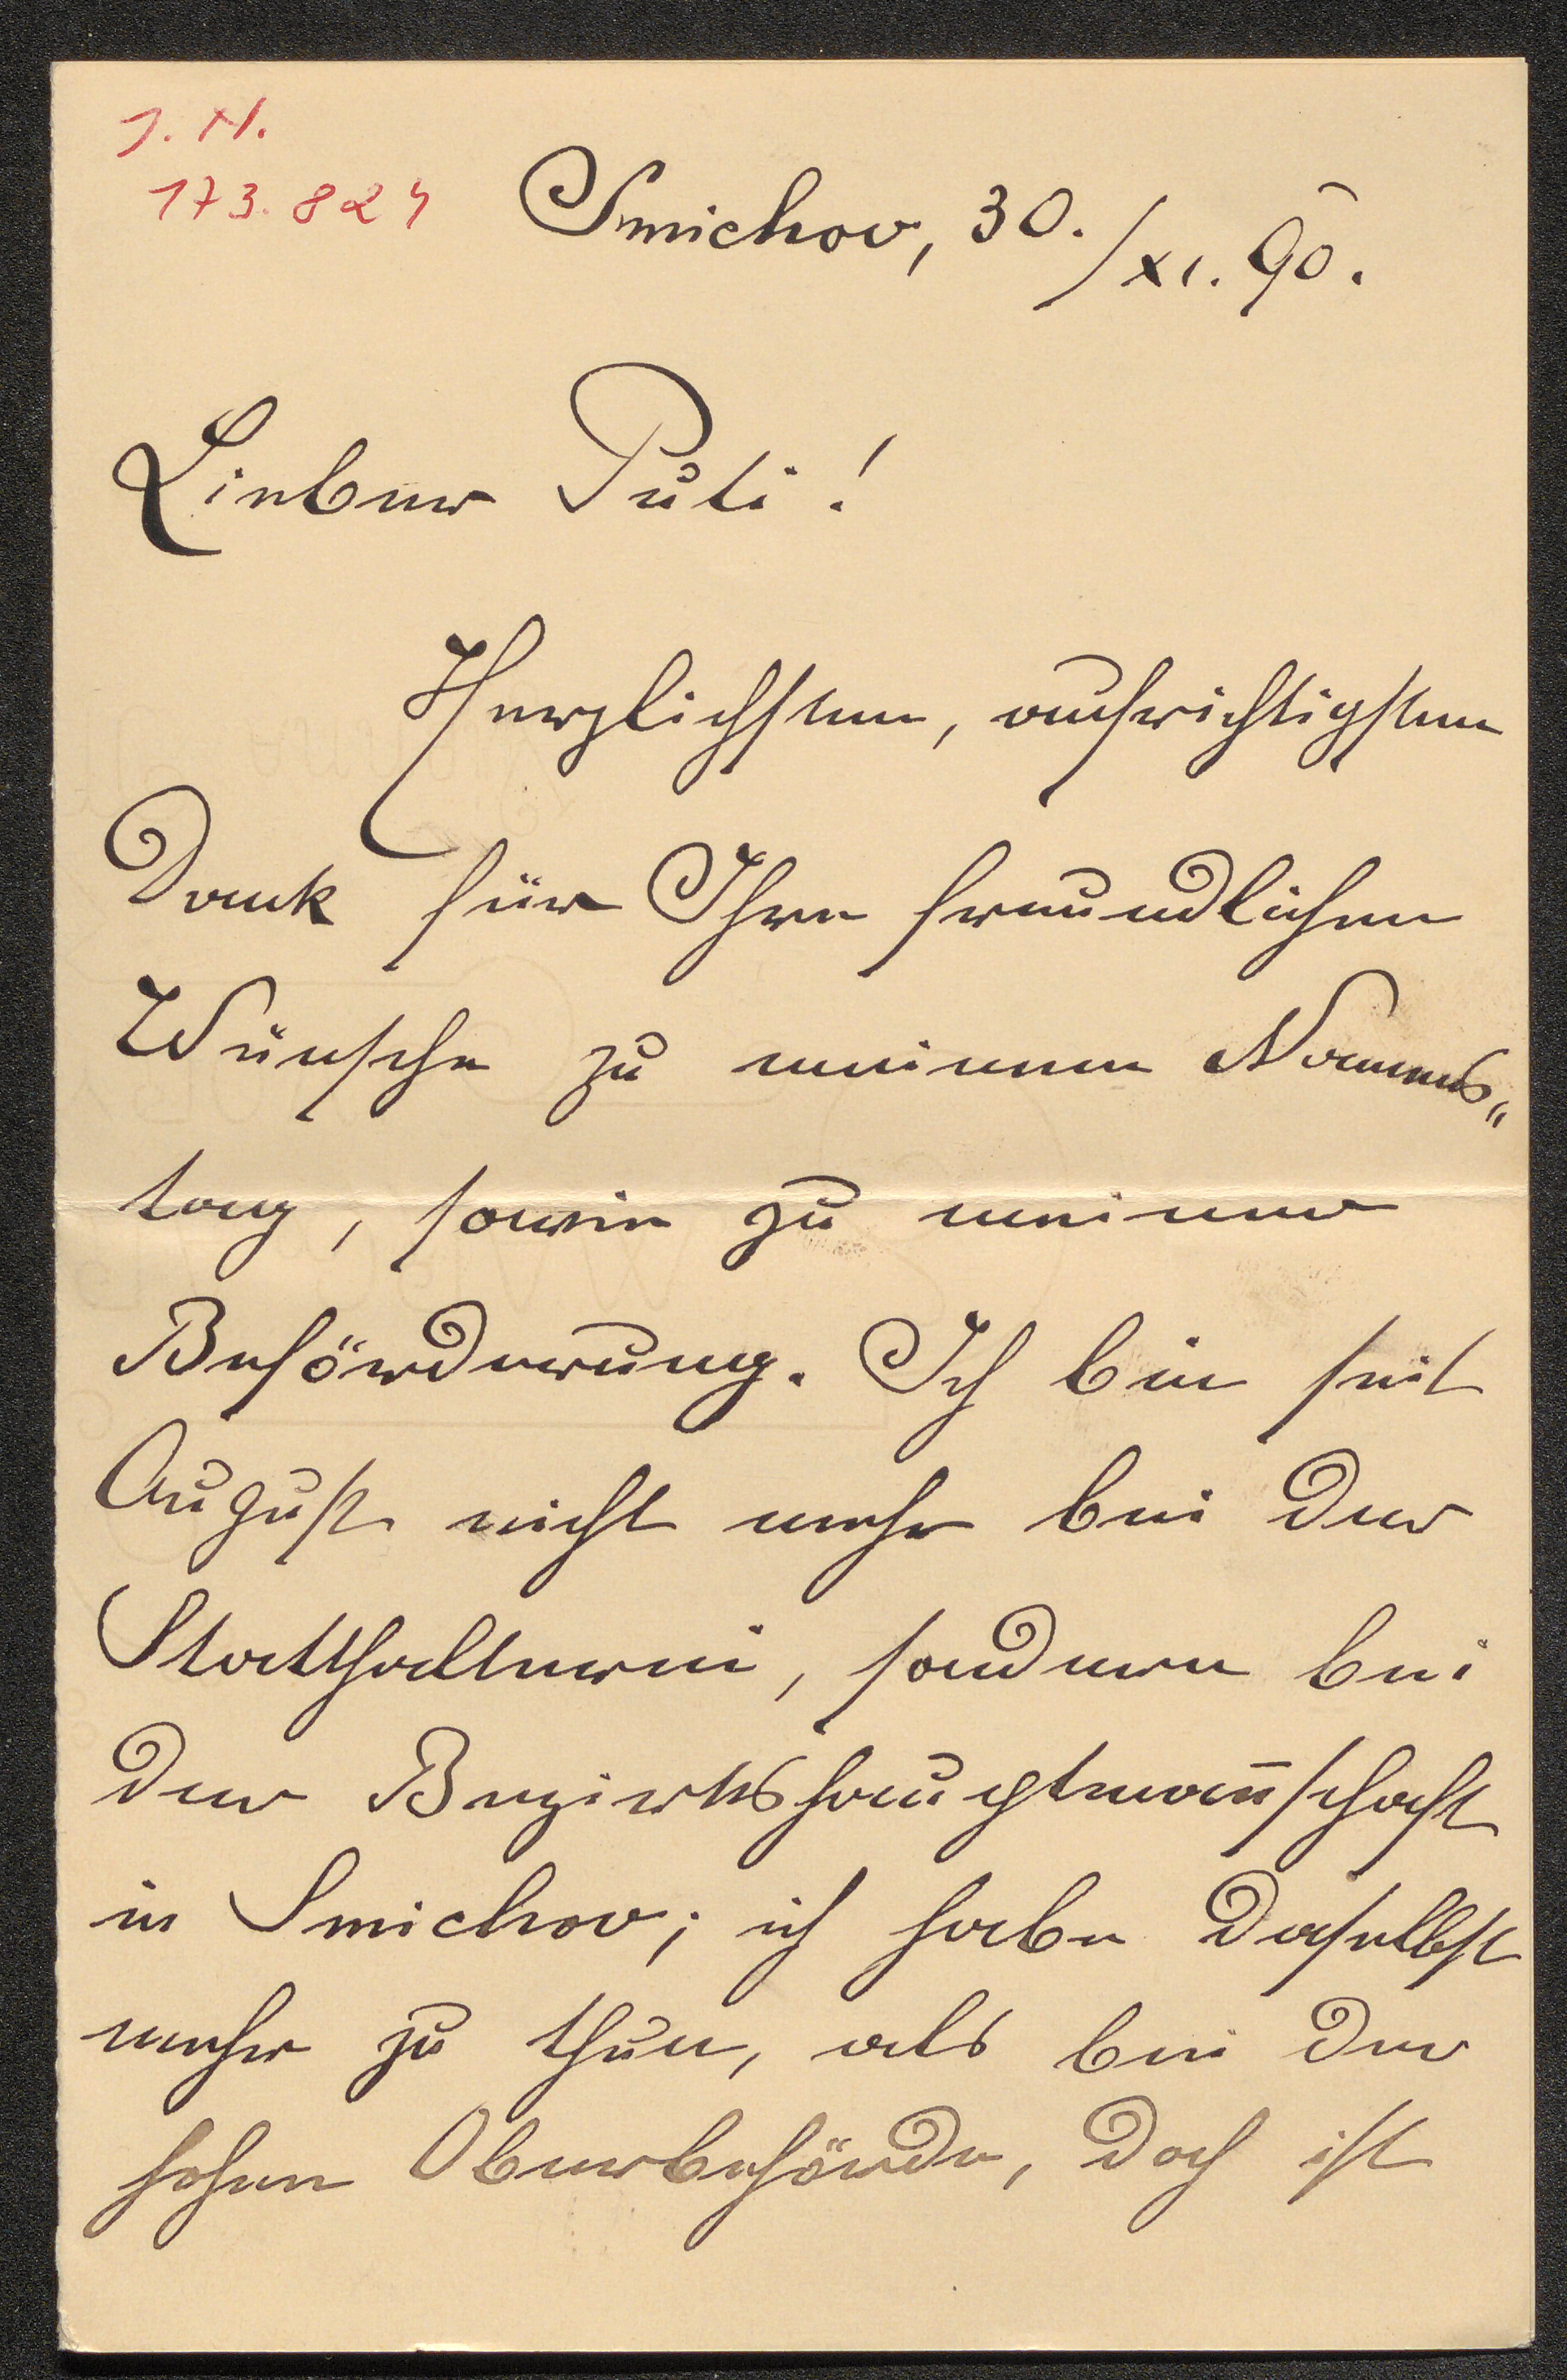 J. N.
173.824
Smichov, 30./XI. 90.
Lieber Puti!
Herzlichsten, aufrichtigsten
Dank für Ihre freundlichen
Wünsche zu meinem Namens„
tag, sowie zu meiner
Beförderung. Ich bin seit
August nicht mehr bei der
Statthalterei, sondern bei
der Bezirkshauptman̄schaft
in Smichov; ich habe daselbst
mehr zu thun, als bei der
hohen Oberbehörde, doch ist